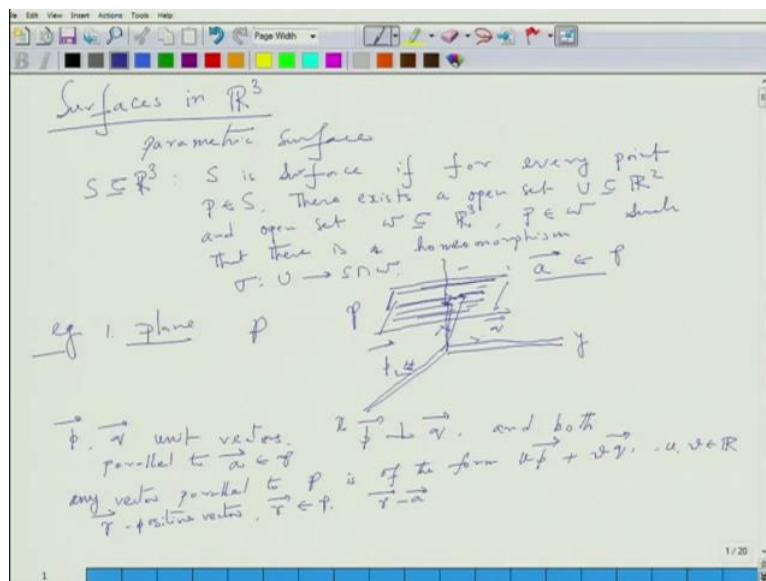 File Edit View Insert Actions Tools Help
Page Width
B I
Surfaces in ℝ³
parametric surface
S ⊆ ℝ³ : S is surface if for every point
p ∈ S. There exists a open set U ⊆ ℝ²
and open set W ⊆ ℝ³, p ∈ W such
that there is a homeomorphism
σ: U → S∩W.
a⃗ ∈ P
eg 1. plane P
P
q⃗
y
p⃗
p⃗, q⃗ unit vectors. p⃗ ⊥ q⃗, and both
parallel to a⃗ ∈ P
any vector parallel to P is of the form up⃗ + vq⃗, u, v ∈ ℝ
r⃗ - positive vector, r⃗ ∈ P. r⃗ - a⃗
1 / 20
1